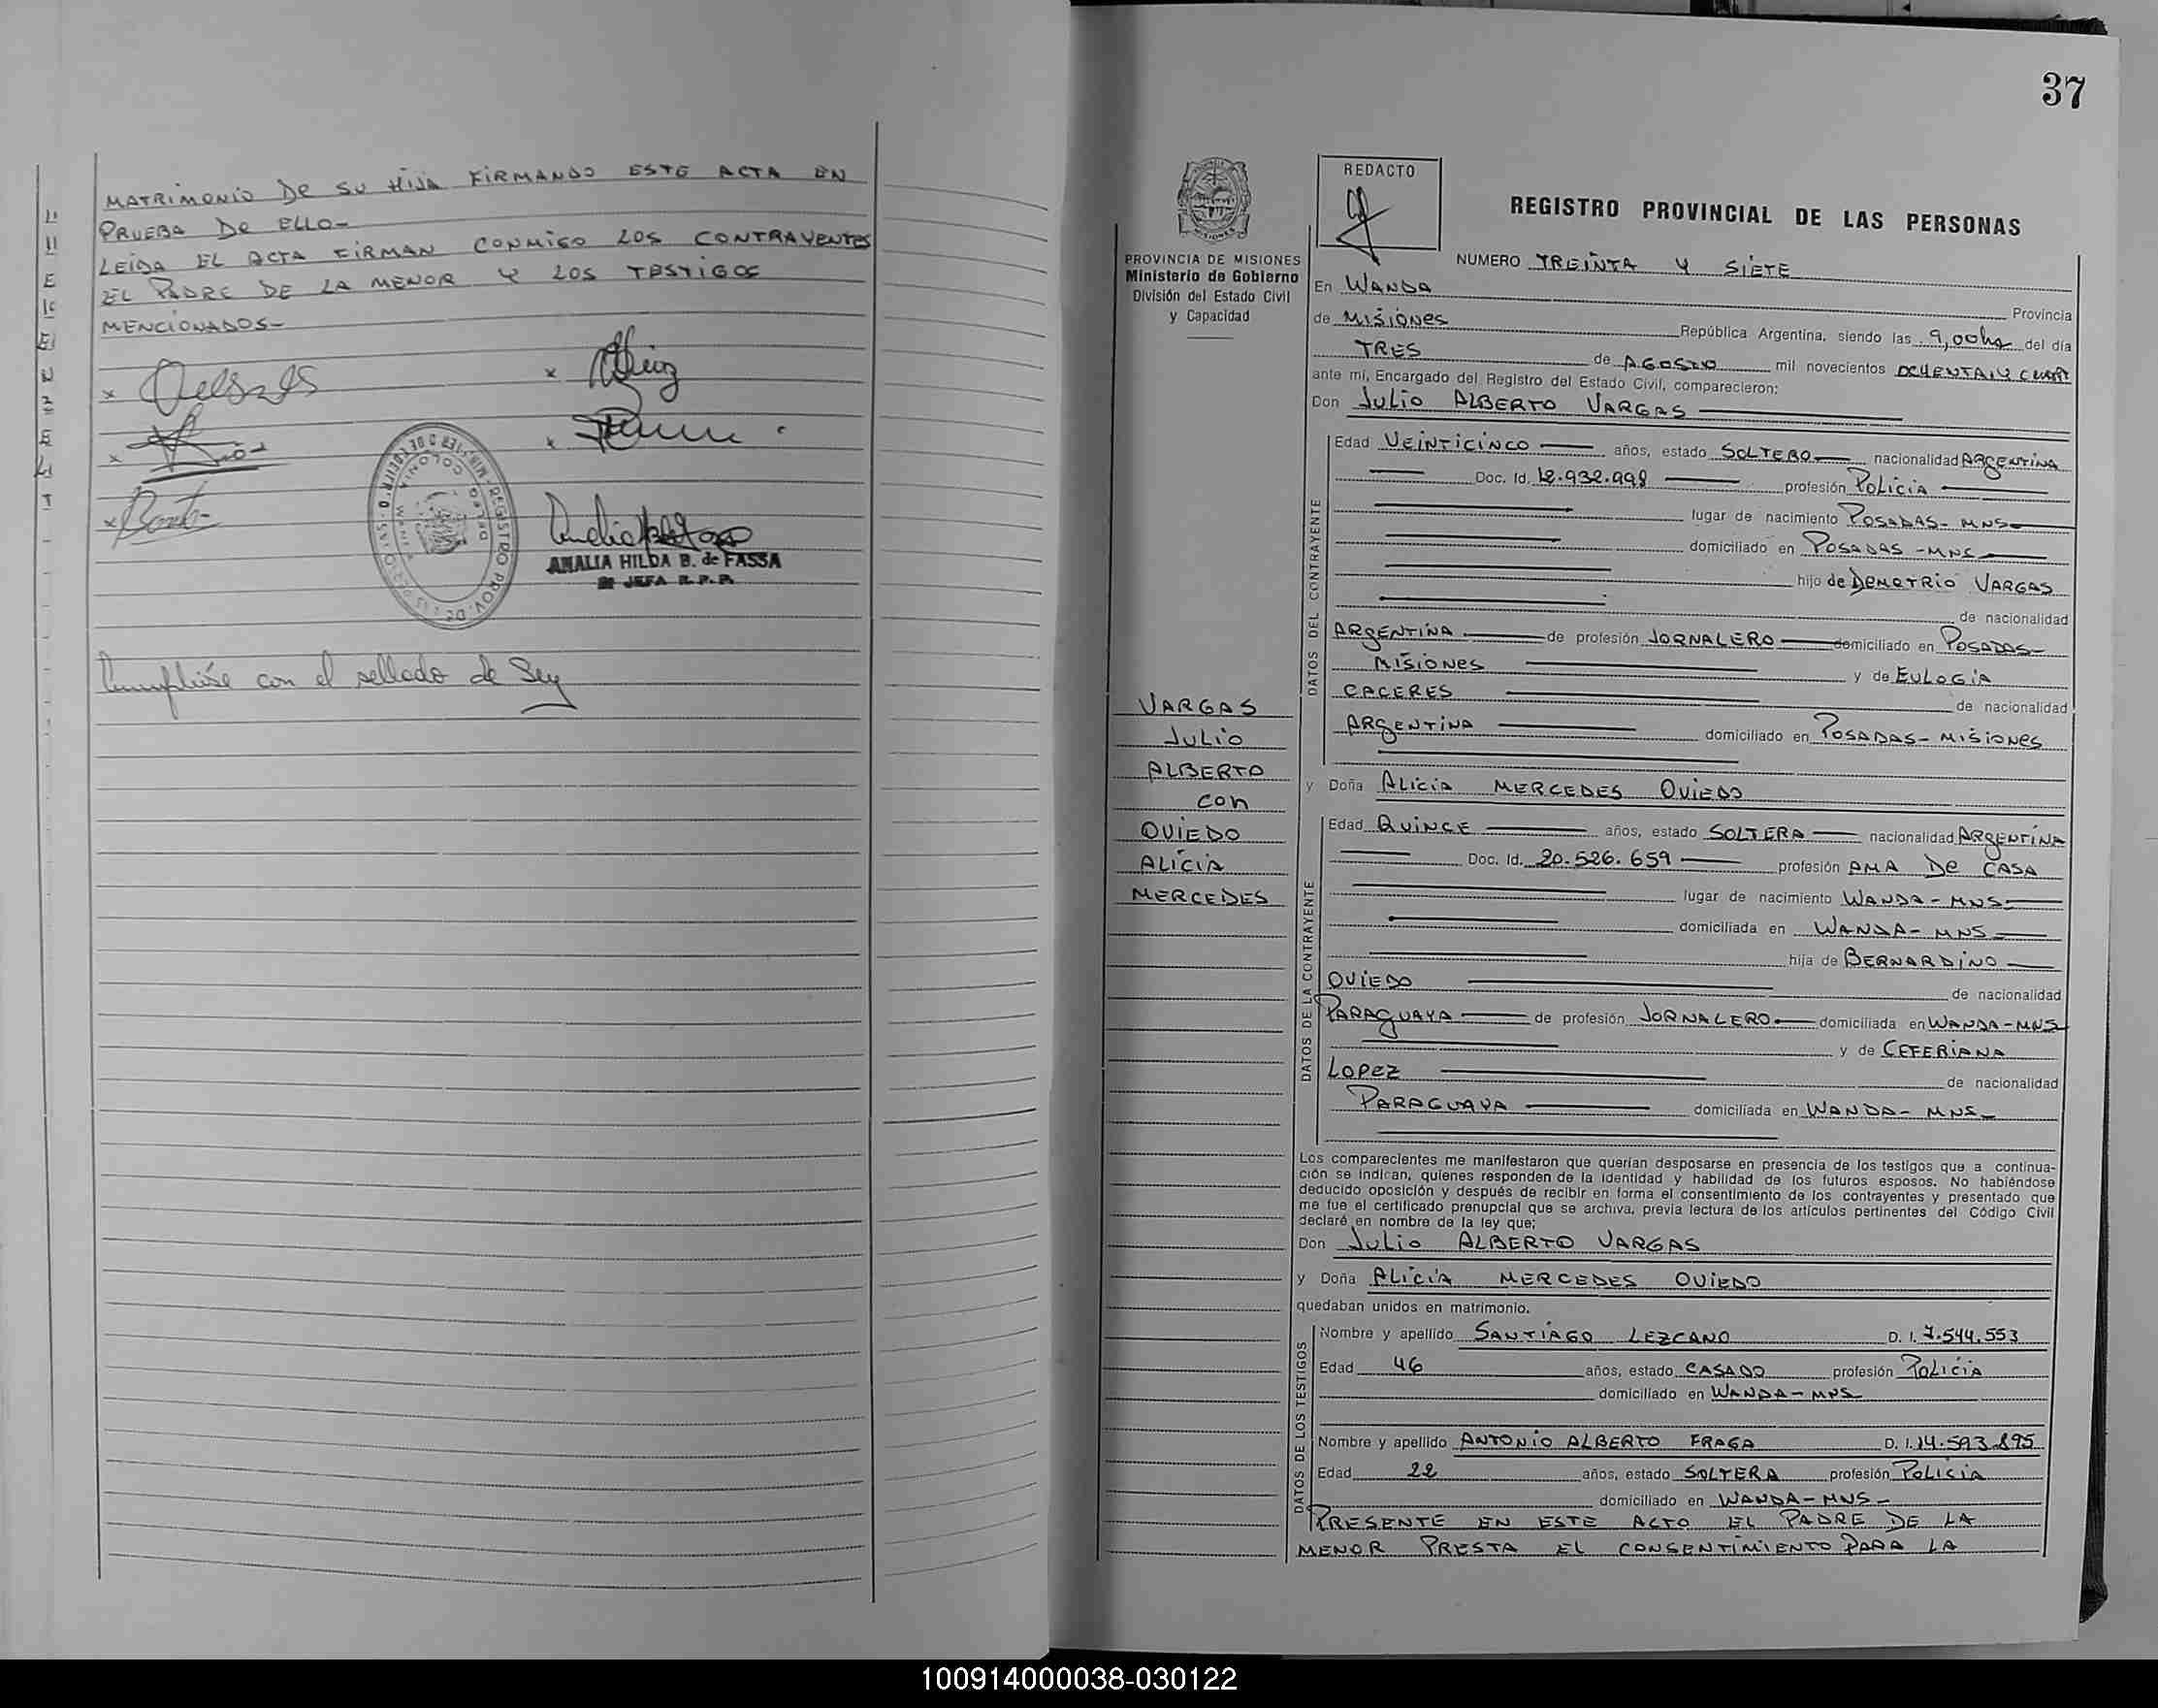 MATRIMONIO DE SU HIJA FIRMANDO ESTE ACTA EN
PRUEBA DE ELLO-
LEIDA EL ACTA FIRMAN CONMIGO LOS CONTRAYENTES
EL PADRE DE LA MENOR Y LOS TESTIGOS
MENCIONADOS-
ANALIA HILDA B. de FASSA
JEFA R.P.P.
Cumplióse con el sellado de Ley
37
REDACTO
REGISTRO PROVINCIAL DE LAS PERSONAS
PROVINCIA DE MISIONES
Ministerio de Gobierno
División del Estado Civil
y Capacidad
NUMERO TREINTA Y SIETE
En WANDA Provincia
de MISIONES República Argentina, siendo las 9,00hs del día
TRES de AGOSTO mil novecientos OCHENTA Y CUATR
ante mí, Encargado del Registro del Estado Civil, comparecieron:
Don JULIO ALBERTO VARGAS
DATOS DEL CONTRAYENTE
Edad VEINTICINCO años, estado SOLTERO nacionalidad ARGENTINA
Doc. Id. 12.932.998 profesión POLICIA
lugar de nacimiento POSADAS-MNS
domiciliado en POSADAS-MNS
hijo de DEMETRIO VARGAS
de nacionalidad
ARGENTINA de profesión JORNALERO domiciliado en POSADAS-
MISIONES y de EULOGIA
CACERES de nacionalidad
ARGENTINA domiciliado en POSADAS-MISIONES
VARGAS
JULIO
ALBERTO
con
OVIEDO
ALICIA
MERCEDES
y Doña ALICIA MERCEDES OVIEDO
DATOS DE LA CONTRAYENTE
Edad QUINCE años, estado SOLTERA nacionalidad ARGENTINA
Doc. Id. 20.526.659 profesión AMA DE CASA
lugar de nacimiento WANDA-MNS-
domiciliada en WANDA-MNS
hija de BERNARDINO
OVIEDO de nacionalidad
PARAGUAYA de profesión JORNALERO domiciliada en WANDA-MNS
y de CEFERIANA
LOPEZ de nacionalidad
PARAGUAYA domiciliada en WANDA-MNS-
Los comparecientes me manifestaron que querían desposarse en presencia de los testigos que a continua-
ción se indican, quienes responden de la identidad y habilidad de los futuros esposos. No habiéndose
deducido oposición y después de recibir en forma el consentimiento de los contrayentes y presentado que
me fue el certificado prenupcial que se archiva, previa lectura de los artículos pertinentes del Código Civil
declaré en nombre de la ley que:
Don JULIO ALBERTO VARGAS
y Doña ALICIA MERCEDES OVIEDO
quedaban unidos en matrimonio.
DATOS DE LOS TESTIGOS
Nombre y apellido SANTIAGO LEZCANO D. I. 7.544.553
Edad 46 años, estado CASADO profesión POLICIA
domiciliado en WANDA-MNS
Nombre y apellido ANTONIO ALBERTO FRAGA D. I. 14.593.895
Edad 22 años, estado SOLTERA profesión POLICIA
domiciliado en WANDA-MNS-
PRESENTE EN ESTE ACTO EL PADRE DE LA
MENOR PRESTA EL CONSENTIMIENTO PARA LA
100914000038-030122